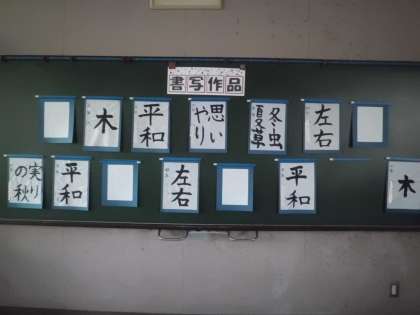 書写作品
木
平和
思いやり
冬虫夏草
左右
実りの秋
平和
左右
平和
木